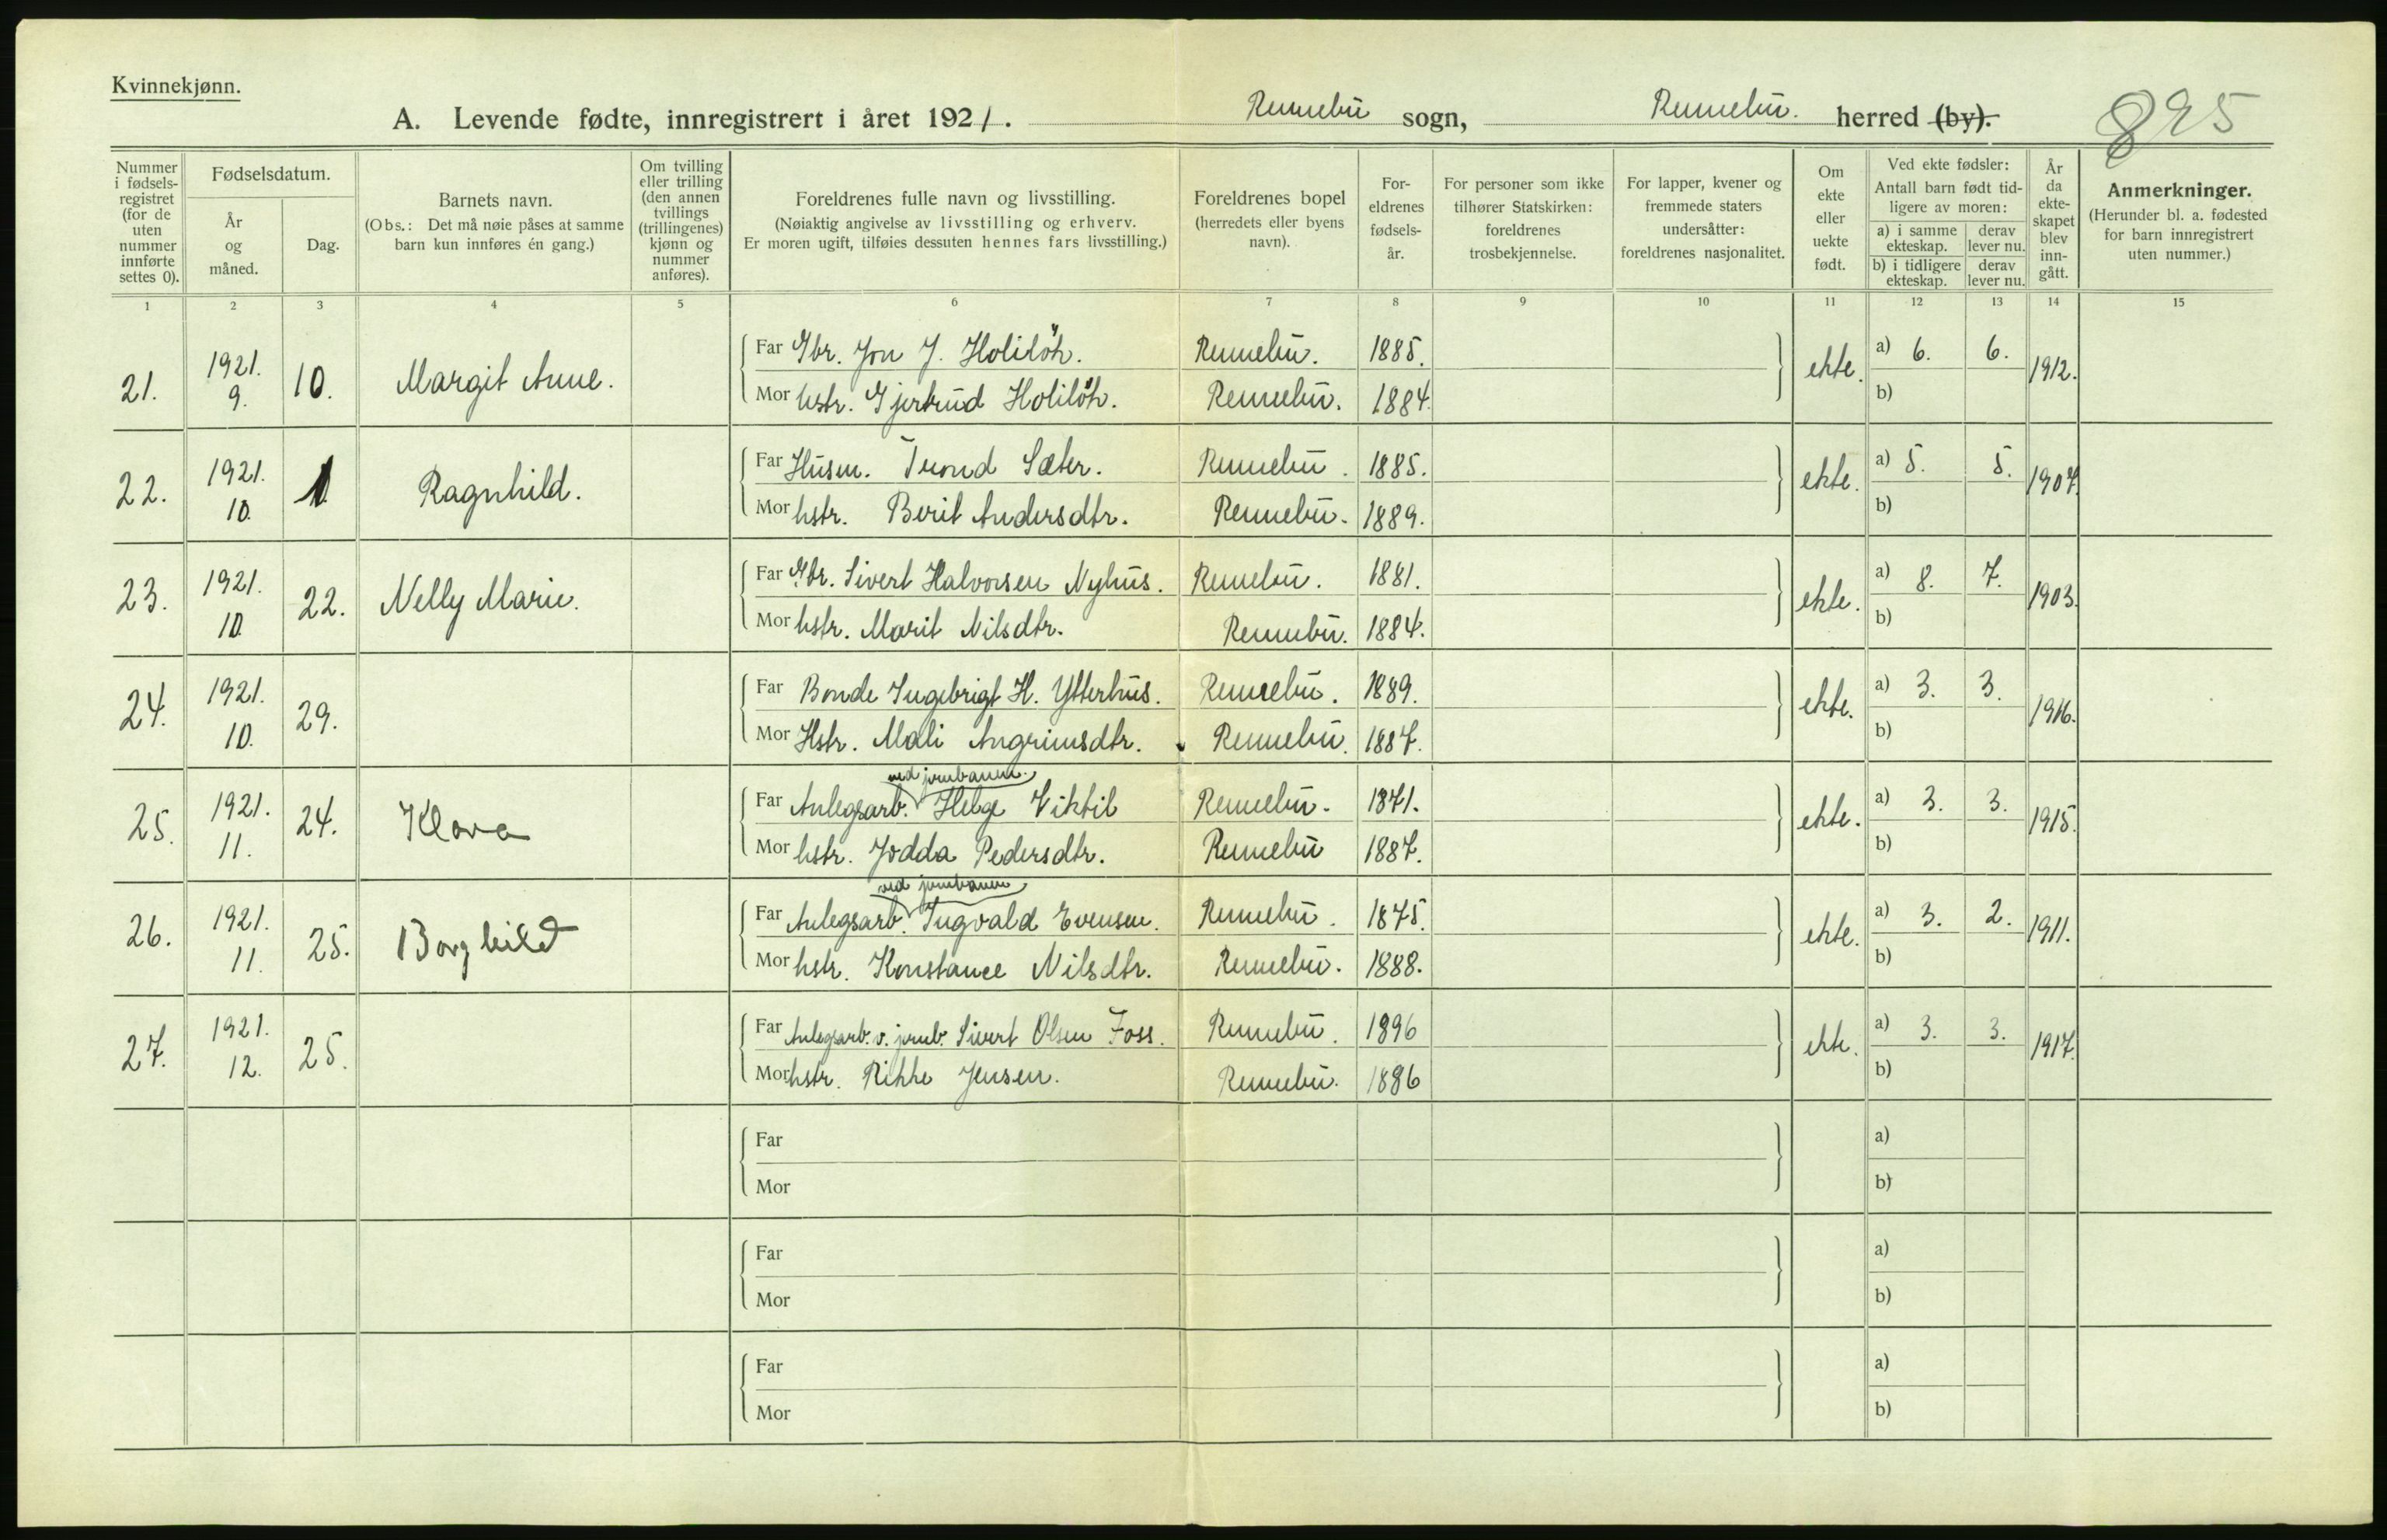 Kvinnekjønn.
A. Levende fødte, innregistrert i året 1921. Rennebu sogn, Rennebu. herred (by).
895
Nummer i fødsels-registret (for de uten nummer innførte settes 0).
Fødselsdatum.
År og måned.
Dag.
Barnets navn.
(Obs.: Det må nøie påses at samme barn kun innføres én gang.)
Om tvilling eller trilling (den annen tvillings (trillingenes) kjønn og nummer anføres).
Foreldrenes fulle navn og livsstilling.
(Nøiaktig angivelse av livsstilling og erhverv.
Er moren ugift, tilføies dessuten hennes fars livsstilling.)
Foreldrenes bopel
(herredets eller byens navn).
For-eldrenes fødsels-år.
For personer som ikke tilhører Statskirken: foreldrenes trosbekjennelse.
For lapper, kvener og fremmede staters undersåtter: foreldrenes nasjonalitet.
Om ekte eller uekte født.
Ved ekte fødsler:
Antall barn født tid-ligere av moren:
a) i samme ekteskap.
derav lever nu.
b) i tidligere ekteskap.
derav lever nu.
År da ekte-skapet blev inn-gått.
Anmerkninger.
(Herunder bl. a. fødested for barn innregistrert uten nummer.)
1 2 3 4 5 6 7 8 9 10 11 12 13 14 15
21. 1921. 9. 10. Margit Anne.
Far Gbr. Jon J. Holiløk. Rennebu. 1885. ekte. a) 6. 6. 1912.
Mor hstr. Gjertrud Holiløk. Rennebu. 1884. b)
22. 1921. 10. 1 Ragnhild.
Far Husm. Trond Sæter. Rennebu. 1885. ekte. a) 5. 5. 1907.
Mor hstr. Berit Andersdtr. Rennebu. 1889. b)
23. 1921. 10. 22. Nelly Marie.
Far Gbr. Sivert Halvorsen Nyhus. Rennebu. 1881. ekte. a) 8. 7. 1903.
Mor hstr. Marit Nilsdtr. Rennebu. 1884. b)
24. 1921. 10. 29.
Far Bonde Ingebrigt H. Ytterhus. Rennebu. 1889. ekte. a) 3. 3. 1916.
Mor Hstr. Mali Angrimsdtr. Rennebu. 1887. b)
25. 1921. 11. 24. Klara
ved jernbanen.
Far Anlegsarb. Helge Viktil Rennebu. 1871. ekte. a) 3. 3. 1915.
Mor hstr. Jodda Pedersdtr. Rennebu 1887. b)
26. 1921. 11. 25. Borghild
ved jernbanen
Far Anlegsarb. Ingvald Evensen. Rennebu. 1875. ekte. a) 3. 2. 1911.
Mor hstr. Konstance Nilsdtr. Rennebu. 1888. b)
27. 1921. 12. 25.
Far Anlegsarb. v. jernb. Sivert Olsen Foss. Rennebu. 1896 ekte. a) 3. 3. 1917.
Mor hstr. Rikke Jensen. Rennebu. 1896 b)
Far a)
Mor b)
Far a)
Mor b)
Far a)
Mor b)